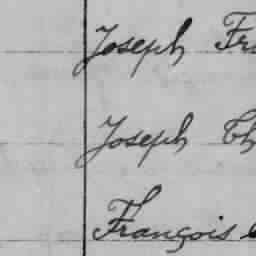 Joseph Fr
Joseph Th
François